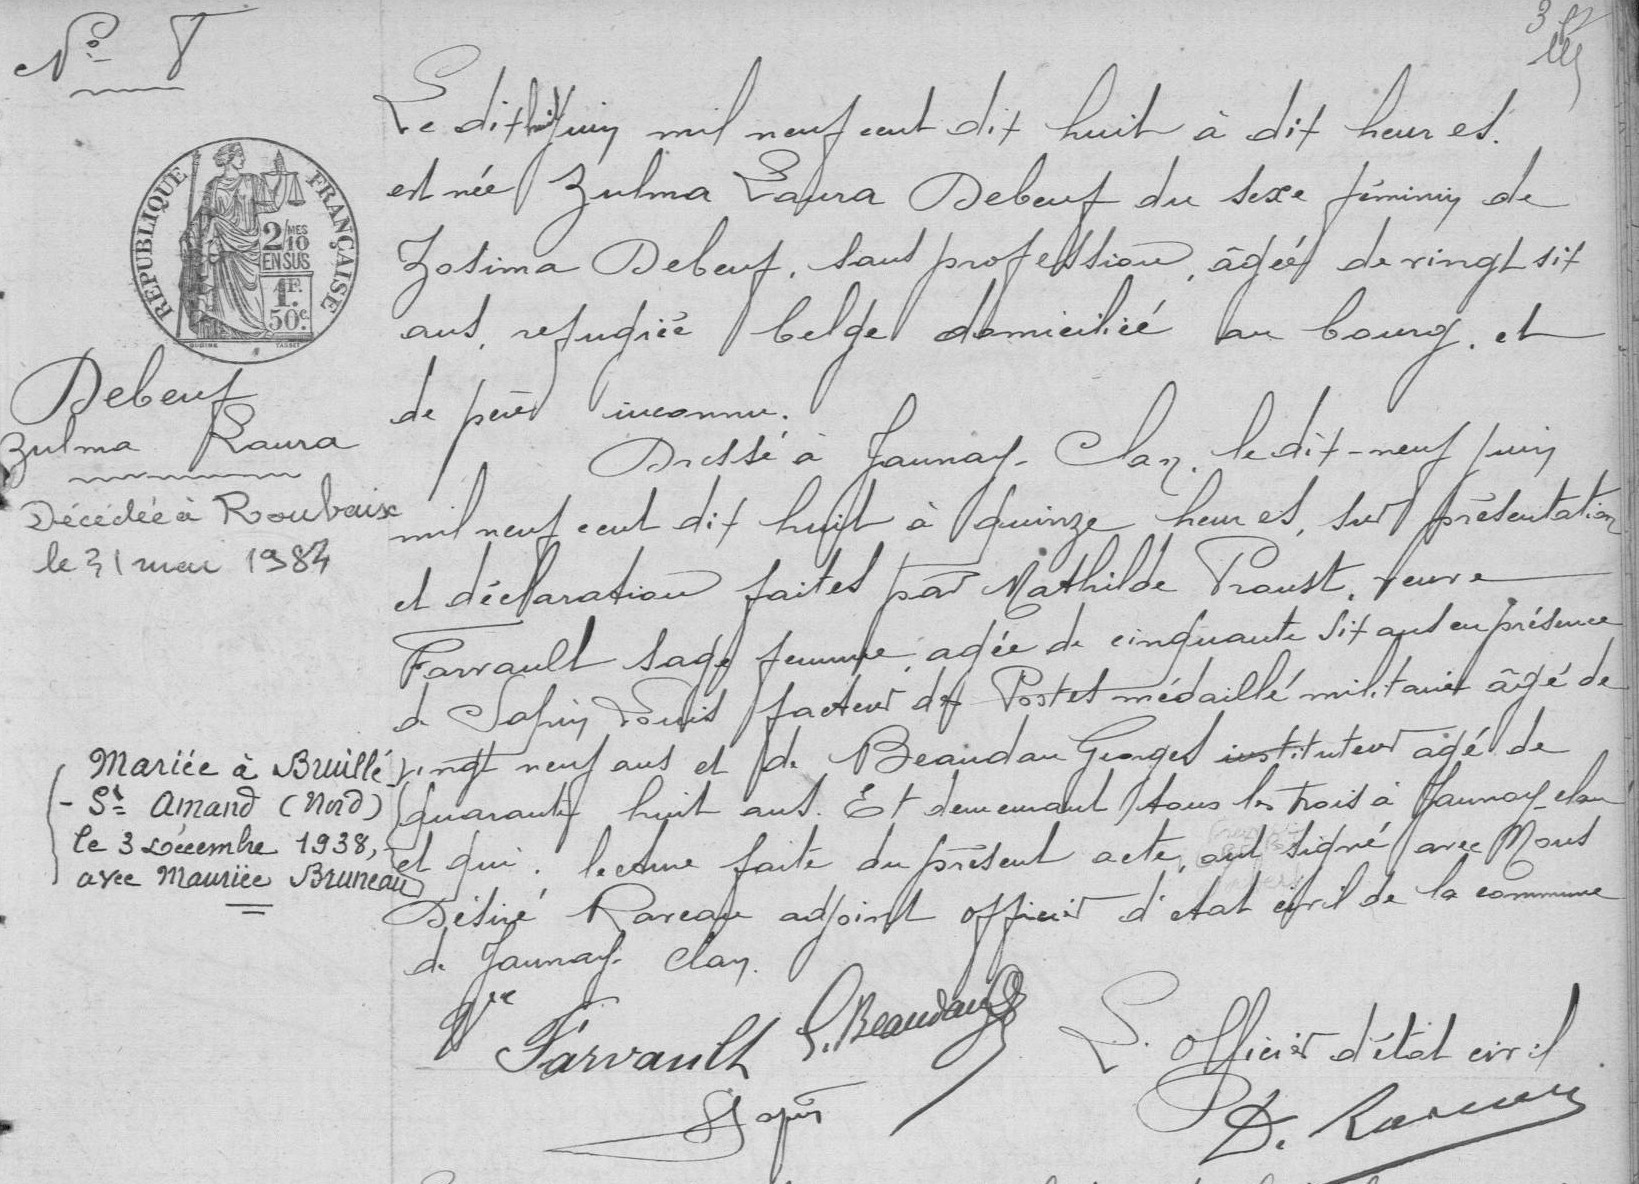 N° 8
Le dix huit Juin mil neuf cent dix huit à dix heures.
est née Zulma Laura Debeuf du sexe féminin de
Zosima Debeuf, sans profession, âgée de vingt six
ans, refugiée belge domiciliée au bourg, et
de père inconnu.
Dressé à Jaunay-Clan, le dix-neuf Juin
mil neuf cent dix huit à quinze heures, sur présentation
et déclaration faites par Mathilde Proust, veuve
Farvault sage femme, agée de cinquante six ans en présence
de Sapin Louis facteur des Postes médaillé militaire âgé de
vingt neuf ans et de Beaudau Georges instituteur agé de
quarante huit ans. Et demeurant tous les trois à Jaunay-clan
et qui, lecture faite du présent acte, ont signé avec Nous
Désiré Raveau adjoint officier d'état civil de la commune
de Jaunay-Clan.
REPUBLIQUE FRANÇAISE
2/10 MES
EN SUS
1F.
50c.
Debeuf
Zulma Laura
Décédée à Roubaix
le 31 mai 1984
Mariée à Bruillé
- St Amand (Nord)
le 3 Décembre 1938,
avec Maurice Bruneau
Vve Farvault G. Beaudau
Sapin
L'officier d'état civil
D. Raveau